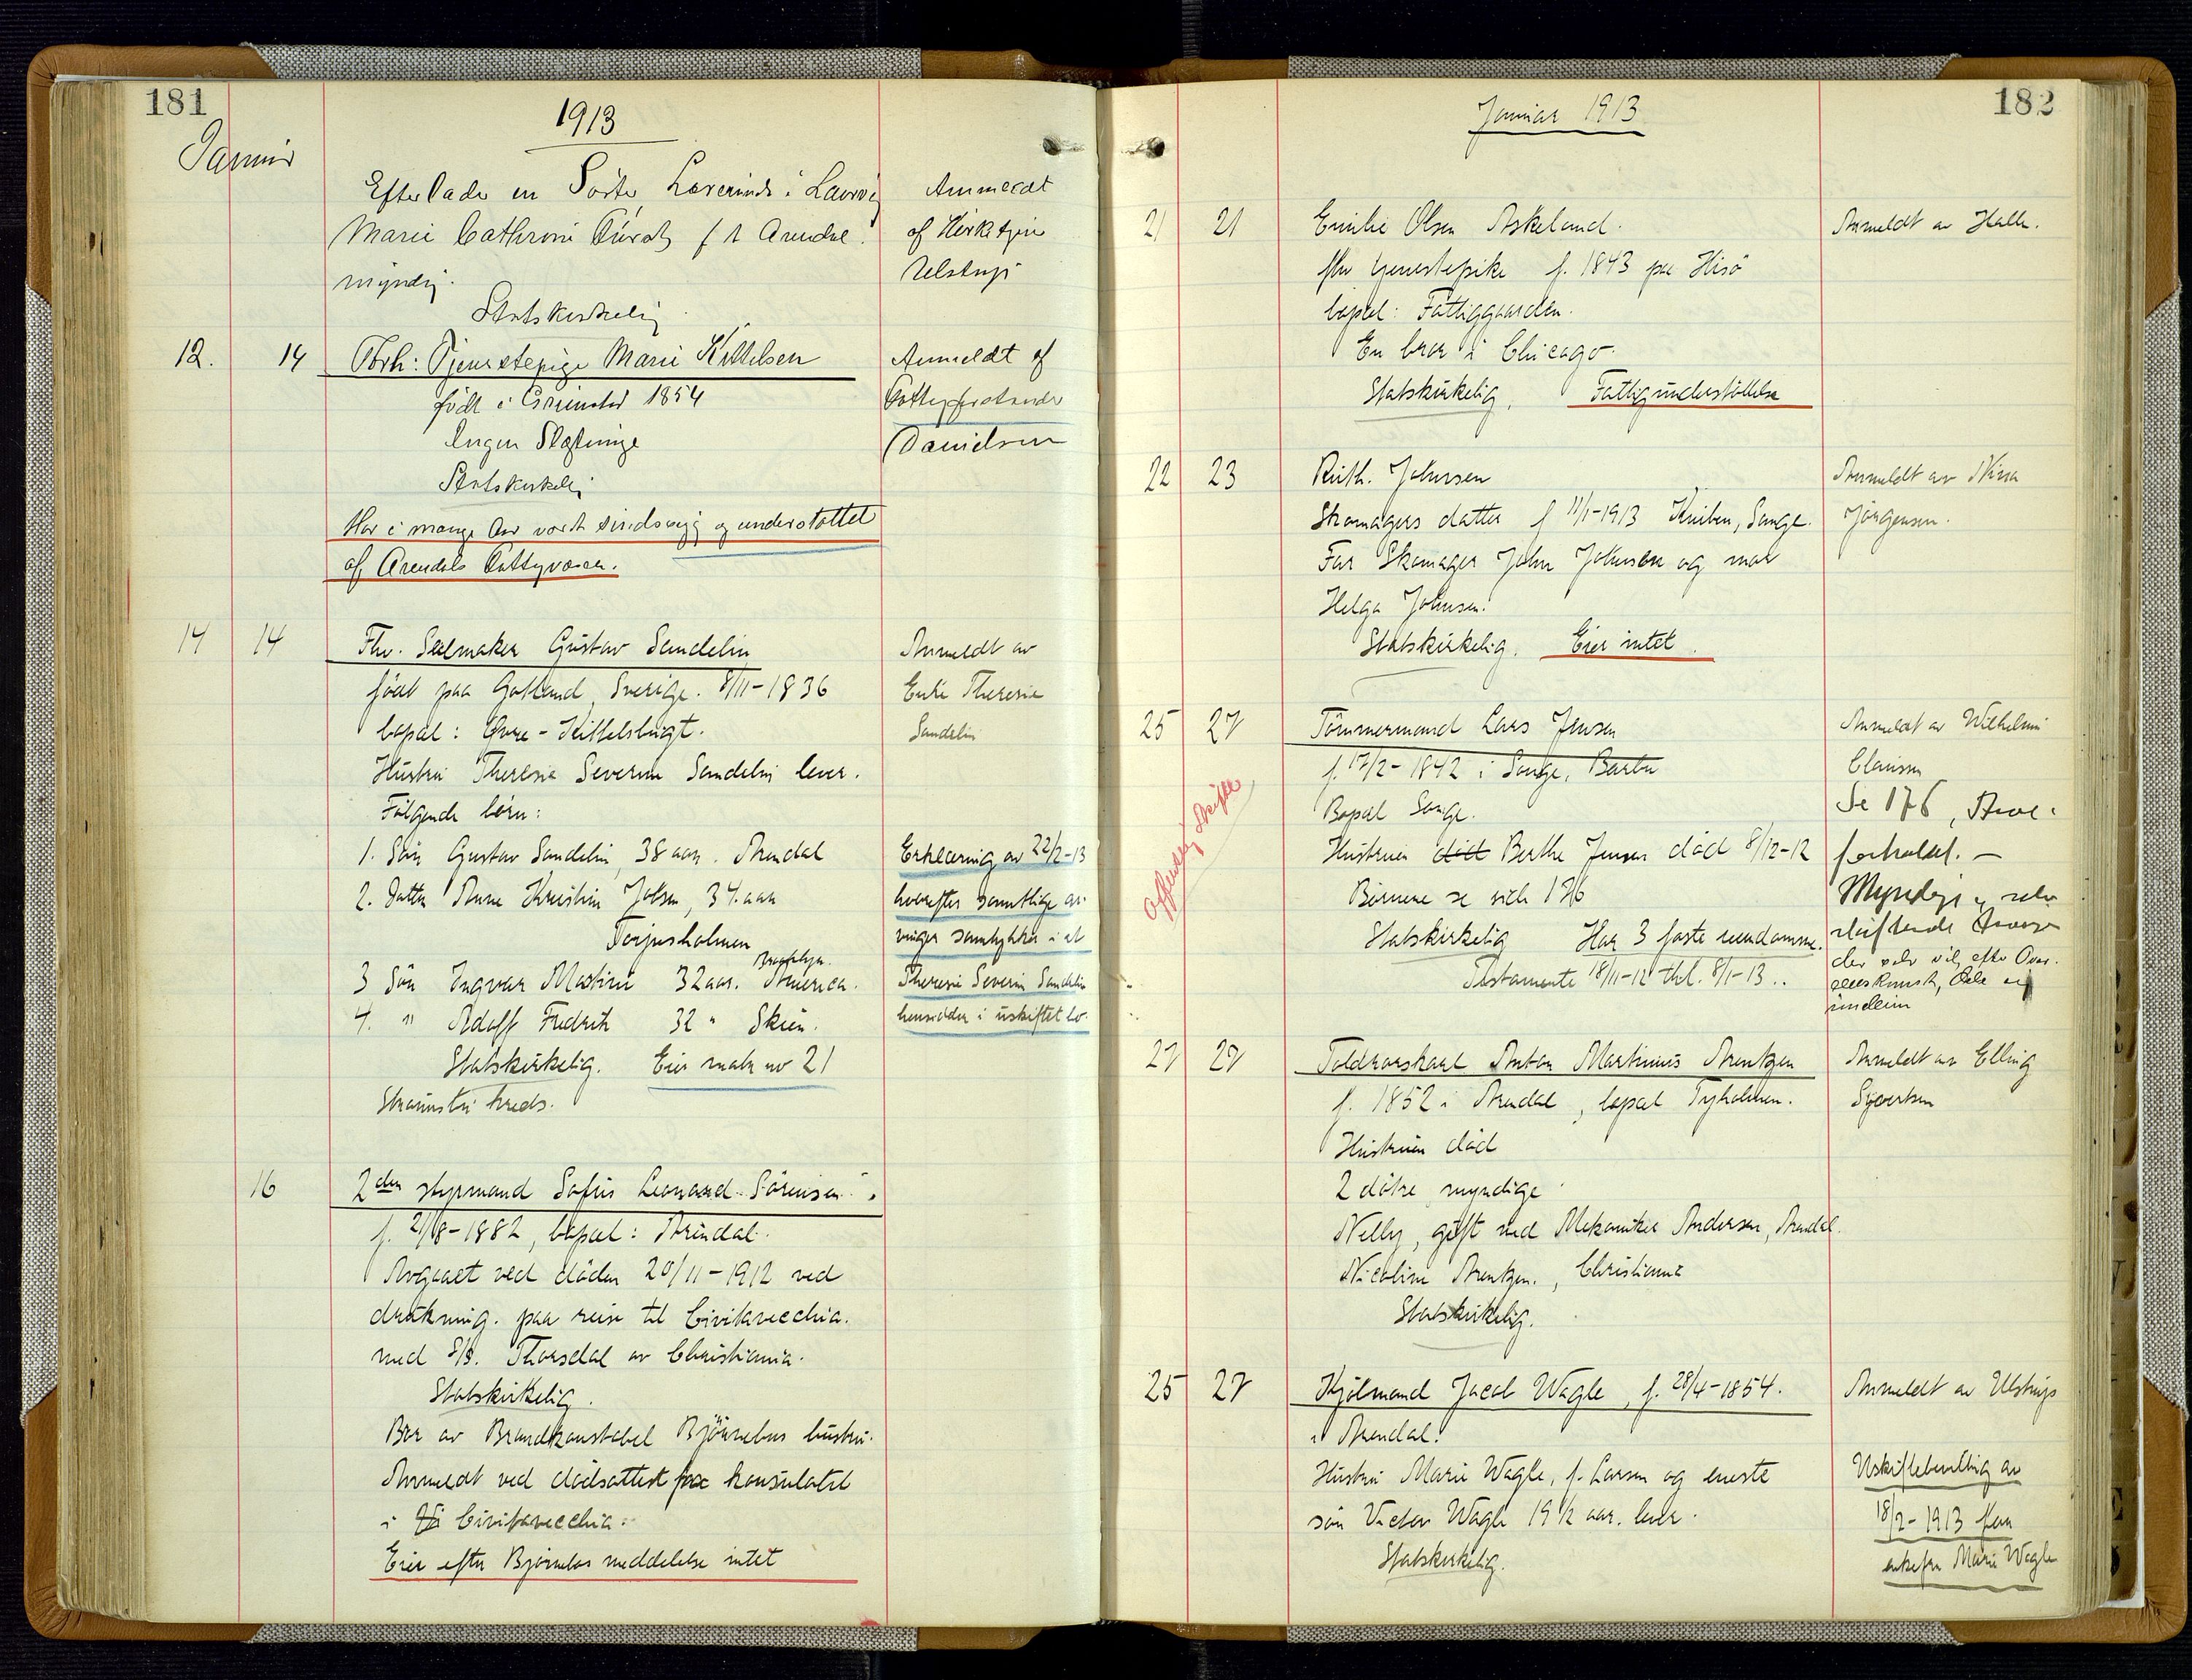 181
1913
Januar
Efterlader en Søster, Lærerinde i Laurvig
Marie Cathrine f i Arendal.
myndig.
Statskirkelig
Anmeldt
af Kirketjen
Ulstrup
12. 14 Forh: Tjenestepige Marie Kittelsen
født i Grimstad 1854
Ingen Slægtninge
Statskirkelig
Har i mange Aar været sindssyg og understøttet
af Arendals Fattigvæsen.
Anmeldt af
Fattigforstander
Danielsen
14 14 Fhv. Seilmaker Gustav Sandelin
født paa Gotland, Sverige. 8/11-1836
bopæl: Øvre-Kittelsbugt.
Hustru Therese Severine Sandelin lever.
Følgende børn:
1. Søn Gustav Sandelin, 38 aar. Arendal
2. Datter Anne Kristine Jolsen, 34 aar
Torjusholmen
3 Søn Ingvar Martin 32 aar. Brooklyn. America.
4. " Adolf Fredrik 32 " Skien.
Statskirkelig. Eier matr no 21
Strømsbu kreds.
Anmeldt av
Enke Therese
Sandelin
Erklæring av 22/2-13
hvorefter samtlige ar-
vinger samtykker i at
Therese Severin Sandelin
hensidder i uskiftet bo.
16 2den styrmand Sofus Leonard Sørensen.
f. 21/8-1882, bopæl: Arendal.
Avgaaet ved døden 20/11-1912 ved
drukning. paa reise til Civitavecchia.
med S/S. Thorsdal av Christiania.
Statskirkelig.
Bror av Brandkonstabel Bjørnebos hustru.
Anmeldt ved dødsattest fra konsulatet
i Civitavecchia.
Eier efter Bjørnebos meddelelse intet
182
Januar 1913
21 21 Emilie Olsen Askeland.
fhv tjenestepike f. 1843 paa Hisø
bopæl: Fattiggaarden.
En bror i Chicago.
Statskirkelig. Fattigunderstøttelse
Anmeldt av Halle.
22 23 Ruth. Johnsen
Skomagers datter f 11/1-1913 Kniben, Songe.
Far Skomager John Johnsen og mor
Helga Johnsen.
Statskirkelig. Eier intet.
Anmeldt av Nina
Jørgensen.
25 27 Tømmermand Lars Jensen
f. 17/2-1842 i Songe, Barbu
Bopæl Songe.
Hustruen død Berthe Jensen død 8/12-12
Børnene se side 176
Statskirkelig Har 3 faste eiendomme.
Testamente 18/11-12 thl. 8/1-13..
Offentlig Skifte
Anmeldt av Wilhelmine
Clausen
Se 176, Arve-
forholdet. —
Myndige og selv
skiftende Arvinger
der selv vil efter Over-
eenskomst, Dele sig
imellem
27 27 Toldrorskarl Anton Martinius Arentzen
f. 1852 i Arendal, bopæl Tyholmen.
Hustruen død
2 døtre myndige
Nelly, gift med Mekaniker Andersen, Arendal.
Nicoline Arentzen., Christiania
Statskirkelig.
Anmeldt av Elling
Syvertsen
25 27 Kjølmand Jacob Wagle, f. 28/4-1854.
i Arendal.
Hustru Marie Wagle, f. Larsen og eneste
søn Victor Wagle 19 1/2 aar. lever.
Statskirkelig.
Anmeldt av Ulstrup
Uskiftebevilling av
18/2-1913 for
enkefru Marie Wagle